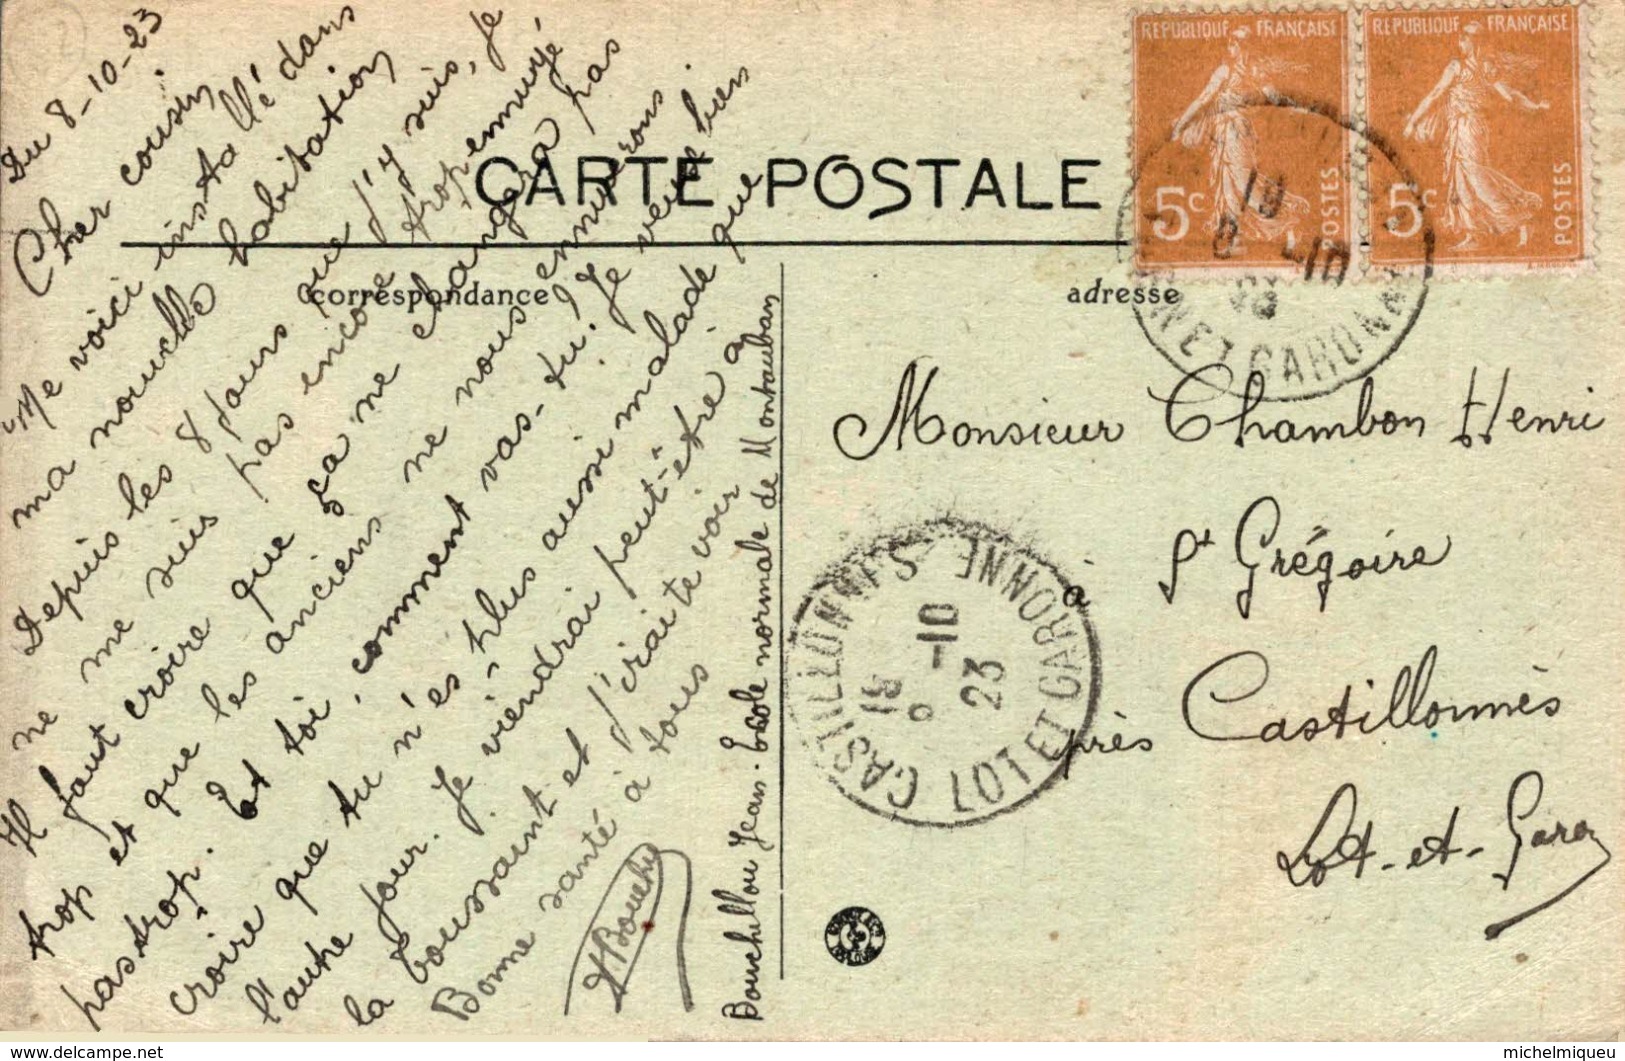 Du 8-10-23
Cher cousin
Me voici installé dans
ma nouvelle habitation
Depuis les 8 jours que j'y suis, je
ne me suis pas encore trop ennuyé
Il faut croire que ça ne changera pas
trop et que les anciens ne nous ennuierons
pas trop. Et toi, comment vas-tu? Je veux bien
croire que tu n'es plus aussi malade que
l'autre jour. Je viendrai peut-être à
la toussaint et j'irai te voir
Bonne santé à tous
Bouchillou Jean. Ecole normale de Montauban
CARTE POSTALE
correspondance
adresse
REPUBLIQUE FRANÇAISE
5c
POSTES
REPUBLIQUE FRANÇAISE
5c
POSTES
18
8 -10
ET GARONNE
Monsieur Chambon Henri
à St Grégoire
près Castillonnès
Lot-et-Garon
CASTILLONNES
18
9 -10
23
LOT ET GARONNE
michelmiqueu